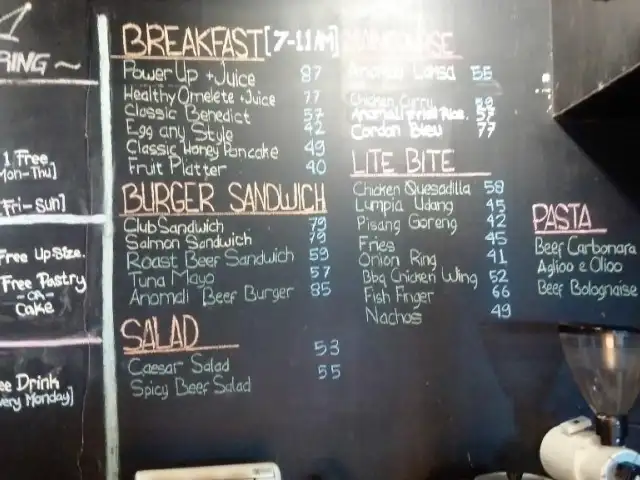 RING ~
1 Free
Mon-Thu]
Fri-Sun]
Free Up Size.
Free Pastry
-OR-
Cake
ee Drink
very Monday]
BREAKFAST [7-11AM]
Power Up + Juice 87
Healthy Omelete + Juice 77
Classic Benedict 57
Egg any Style 42
Classic Honey Pancake 49
Fruit Platter 40
BURGER SANDWICH
Club Sandwich 79
Salmon Sandwich 79
Roast Beef Sandwich 59
Tuna Mayo 57
Anomali Beef Burger 85
SALAD
Caesar Salad 53
Spicy Beef Salad 55
Anomali Laksa 55
Chicken Curry 59
Anomali Fried Rice. 57
Cordon Bleu 77
LITE BITE
Chicken Quesadilla 59
Lumpia Udang 45
Pisang Goreng 42
Fries 45
Onion Ring 41
Bbq Chicken Wing 52
Fish Finger 66
Nachos 49
PASTA
Beef Carbonara
Aglioo e Olioo
Beef Bolognaise